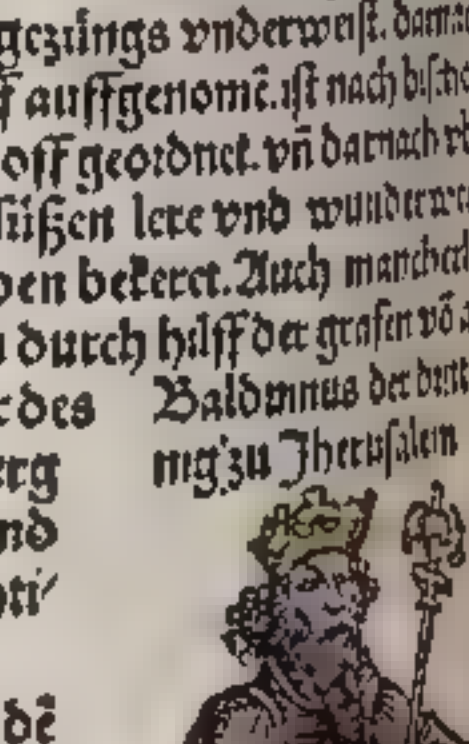 gczüngs vnderweist. darna
auffgenomē. ist nach bisch
off geordnet. vñ darnach
süßen lere vnd wunderwe
en bekeret. Auch mancherl
durch hilff der grafen vō
des
Baldwinus der dritt
erg
nig zu Jherusalem
nd
dē